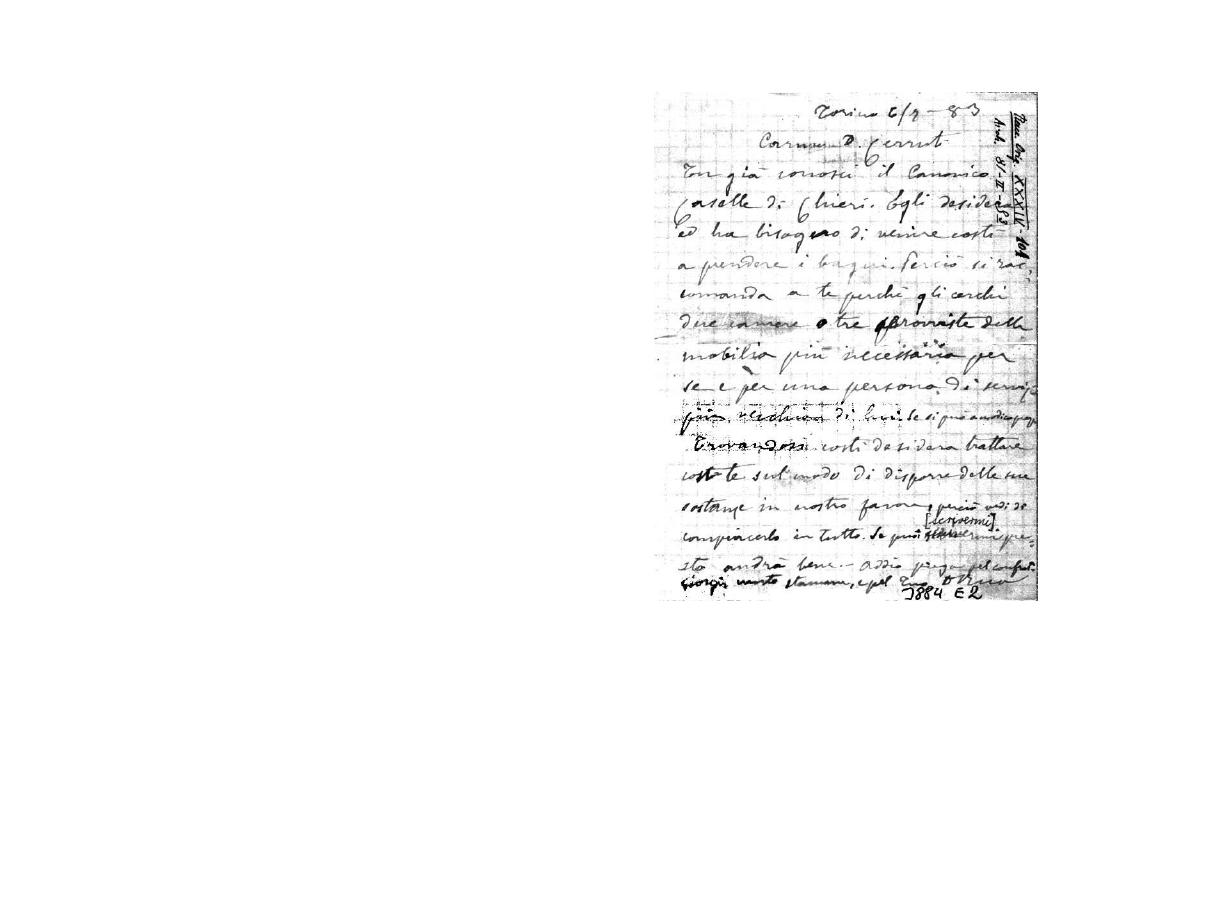 Torino 6/7-83
Carissimo D. Cerruti
Tu già conosci il Canonico
Caselle di Chieri. Egli desidera
ed ha bisogno di venire costì
a prendere i bagni. Perciò si rac-
comanda a te perchè gli cerchi
due camere o tre provviste della
mobilia più necessaria per
se e per una persona di servizio
più vecchia di lui. Se si può a modico
Trovandosi costì desidera trattare
con te sul modo di disporre delle sue
sostanze in nostro favore, perciò vedi di
[scrivermi]
compiacerlo in tutto. Se puoi scrivermi pre=
sto andrà bene. - Addio prega pel
morto stamane, e pel tuo D Rua
7884 E2
XXXIV - 104